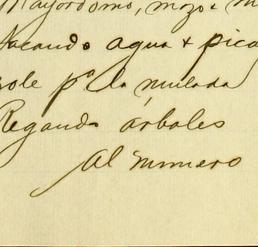 Mayordomo, mozo e
Sacando agua + pica
sole pª la mulada
Regando árboles
Al numero